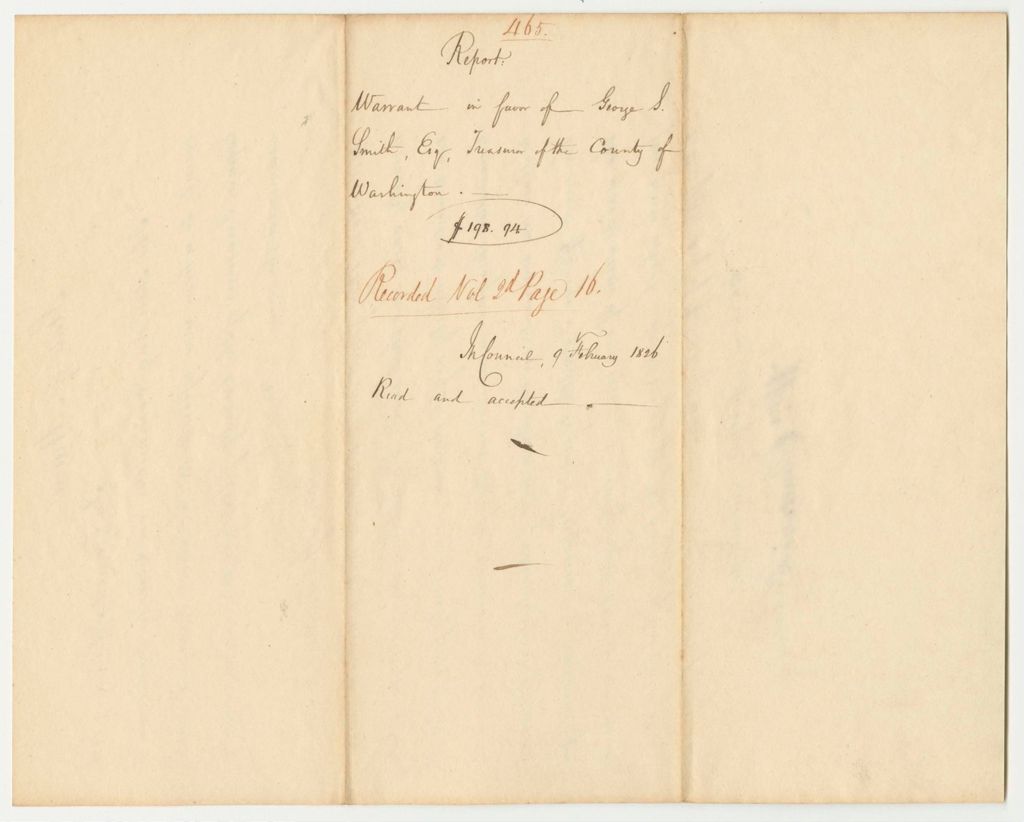 465.
Report.
Warrant in favor of George S.
Smith, Esq, Treasurer of the County of
Washington.
$198.94
Recorded Vol 2d Page 16.
In Council, 9 February 1826
Read and accepted.